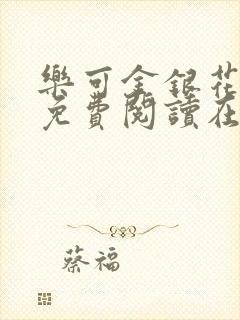 樂可金銀花
免費閱讀在
蔡福